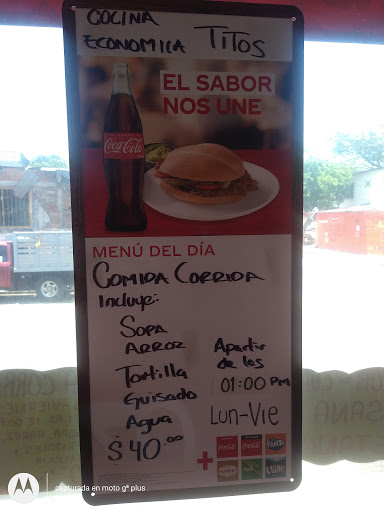 COCINA
ECONOMICA TITOS
EL SABOR
NOS UNE
Coca-Cola
MENÚ DEL DÍA
COMIDA CORRIDA
Incluye:
SOPA
ARROZ
Tortilla
Guisado
Agua
$40.00
Apartir
de les
01:00 Pm
Lun-Vie
+
Coca-Cola
Coca-Cola
FANTA
capturada en moto g⁶ plus